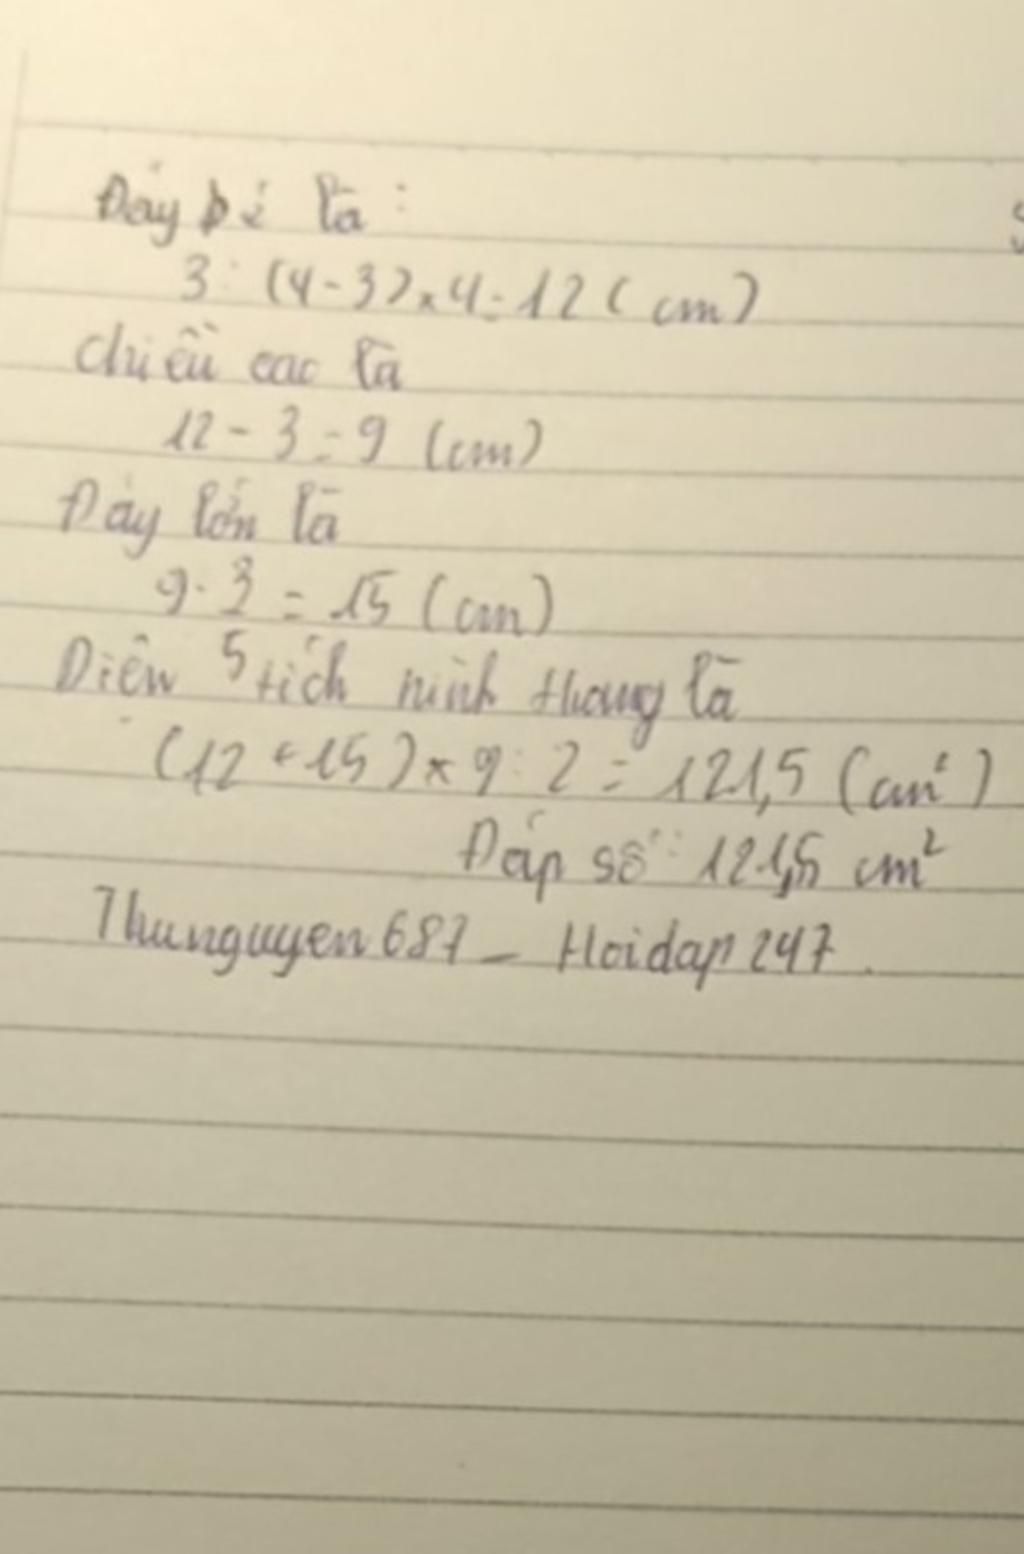 Đáy bé là:
3: (4-3)×4=12(cm)
chiều cao là
12-3=9 (cm)
Đáy lớn là
9:3/5=15 (cm)
Diện tích hình thang là
(12+15)×9:2=121,5 (cm²)
Đáp số: 121,5 cm²
Thunguyen687 - Hoidap247.